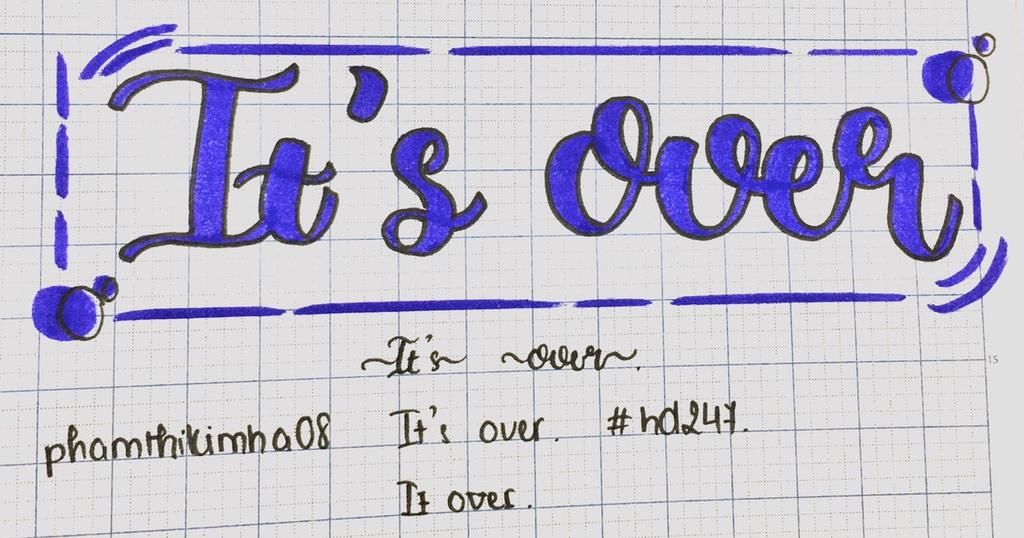 It's over
~It's~ ~over~.
phamthikimha08 It's over. #hd247.
It over.
15